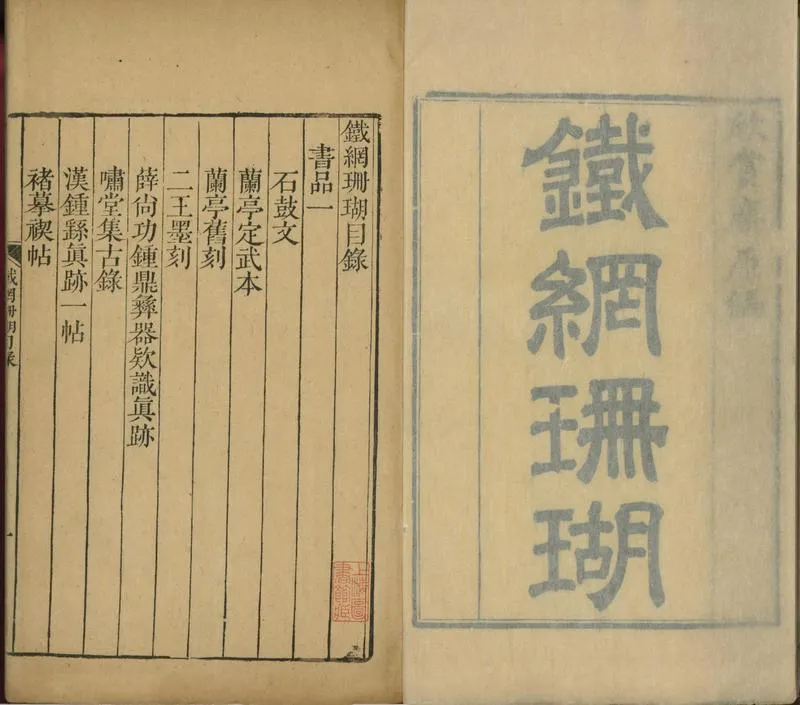 鐵網珊瑚
鐵網珊瑚目錄
書品一
石鼓文
蘭亭定武本
蘭亭舊刻
二王墨刻
薛尙功鍾鼎彝器欵識眞跡
嘯堂集古錄
漢鍾繇眞跡一帖
褚摹禊帖
鐵網珊瑚目錄
一
上海圖書館藏